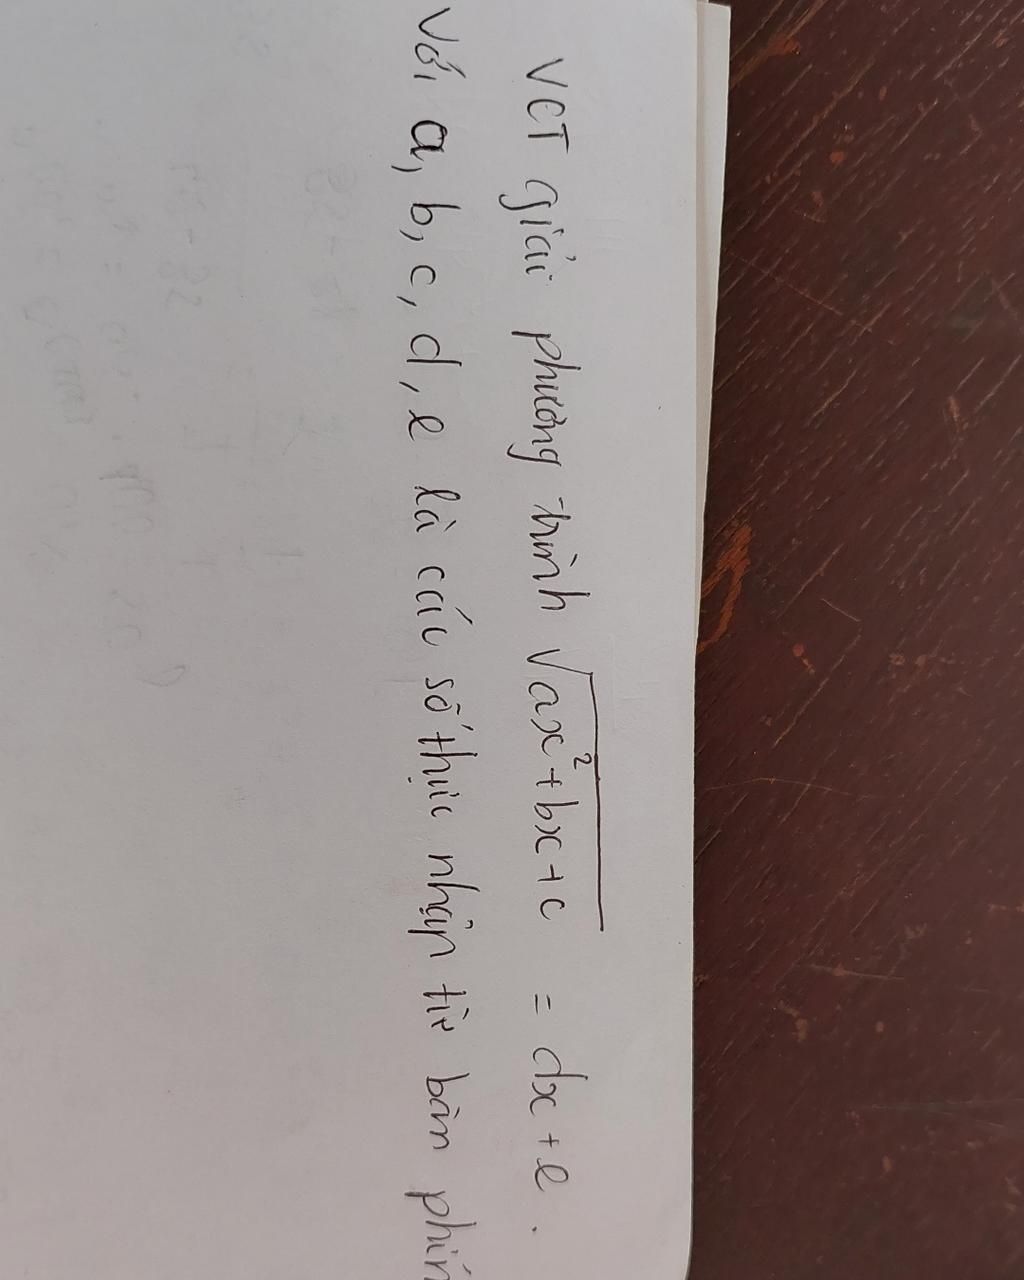 VCT giải phương trình √ax²+bx+c = dx + e.
Với a, b, c, d, e là các số thực nhập từ bàn